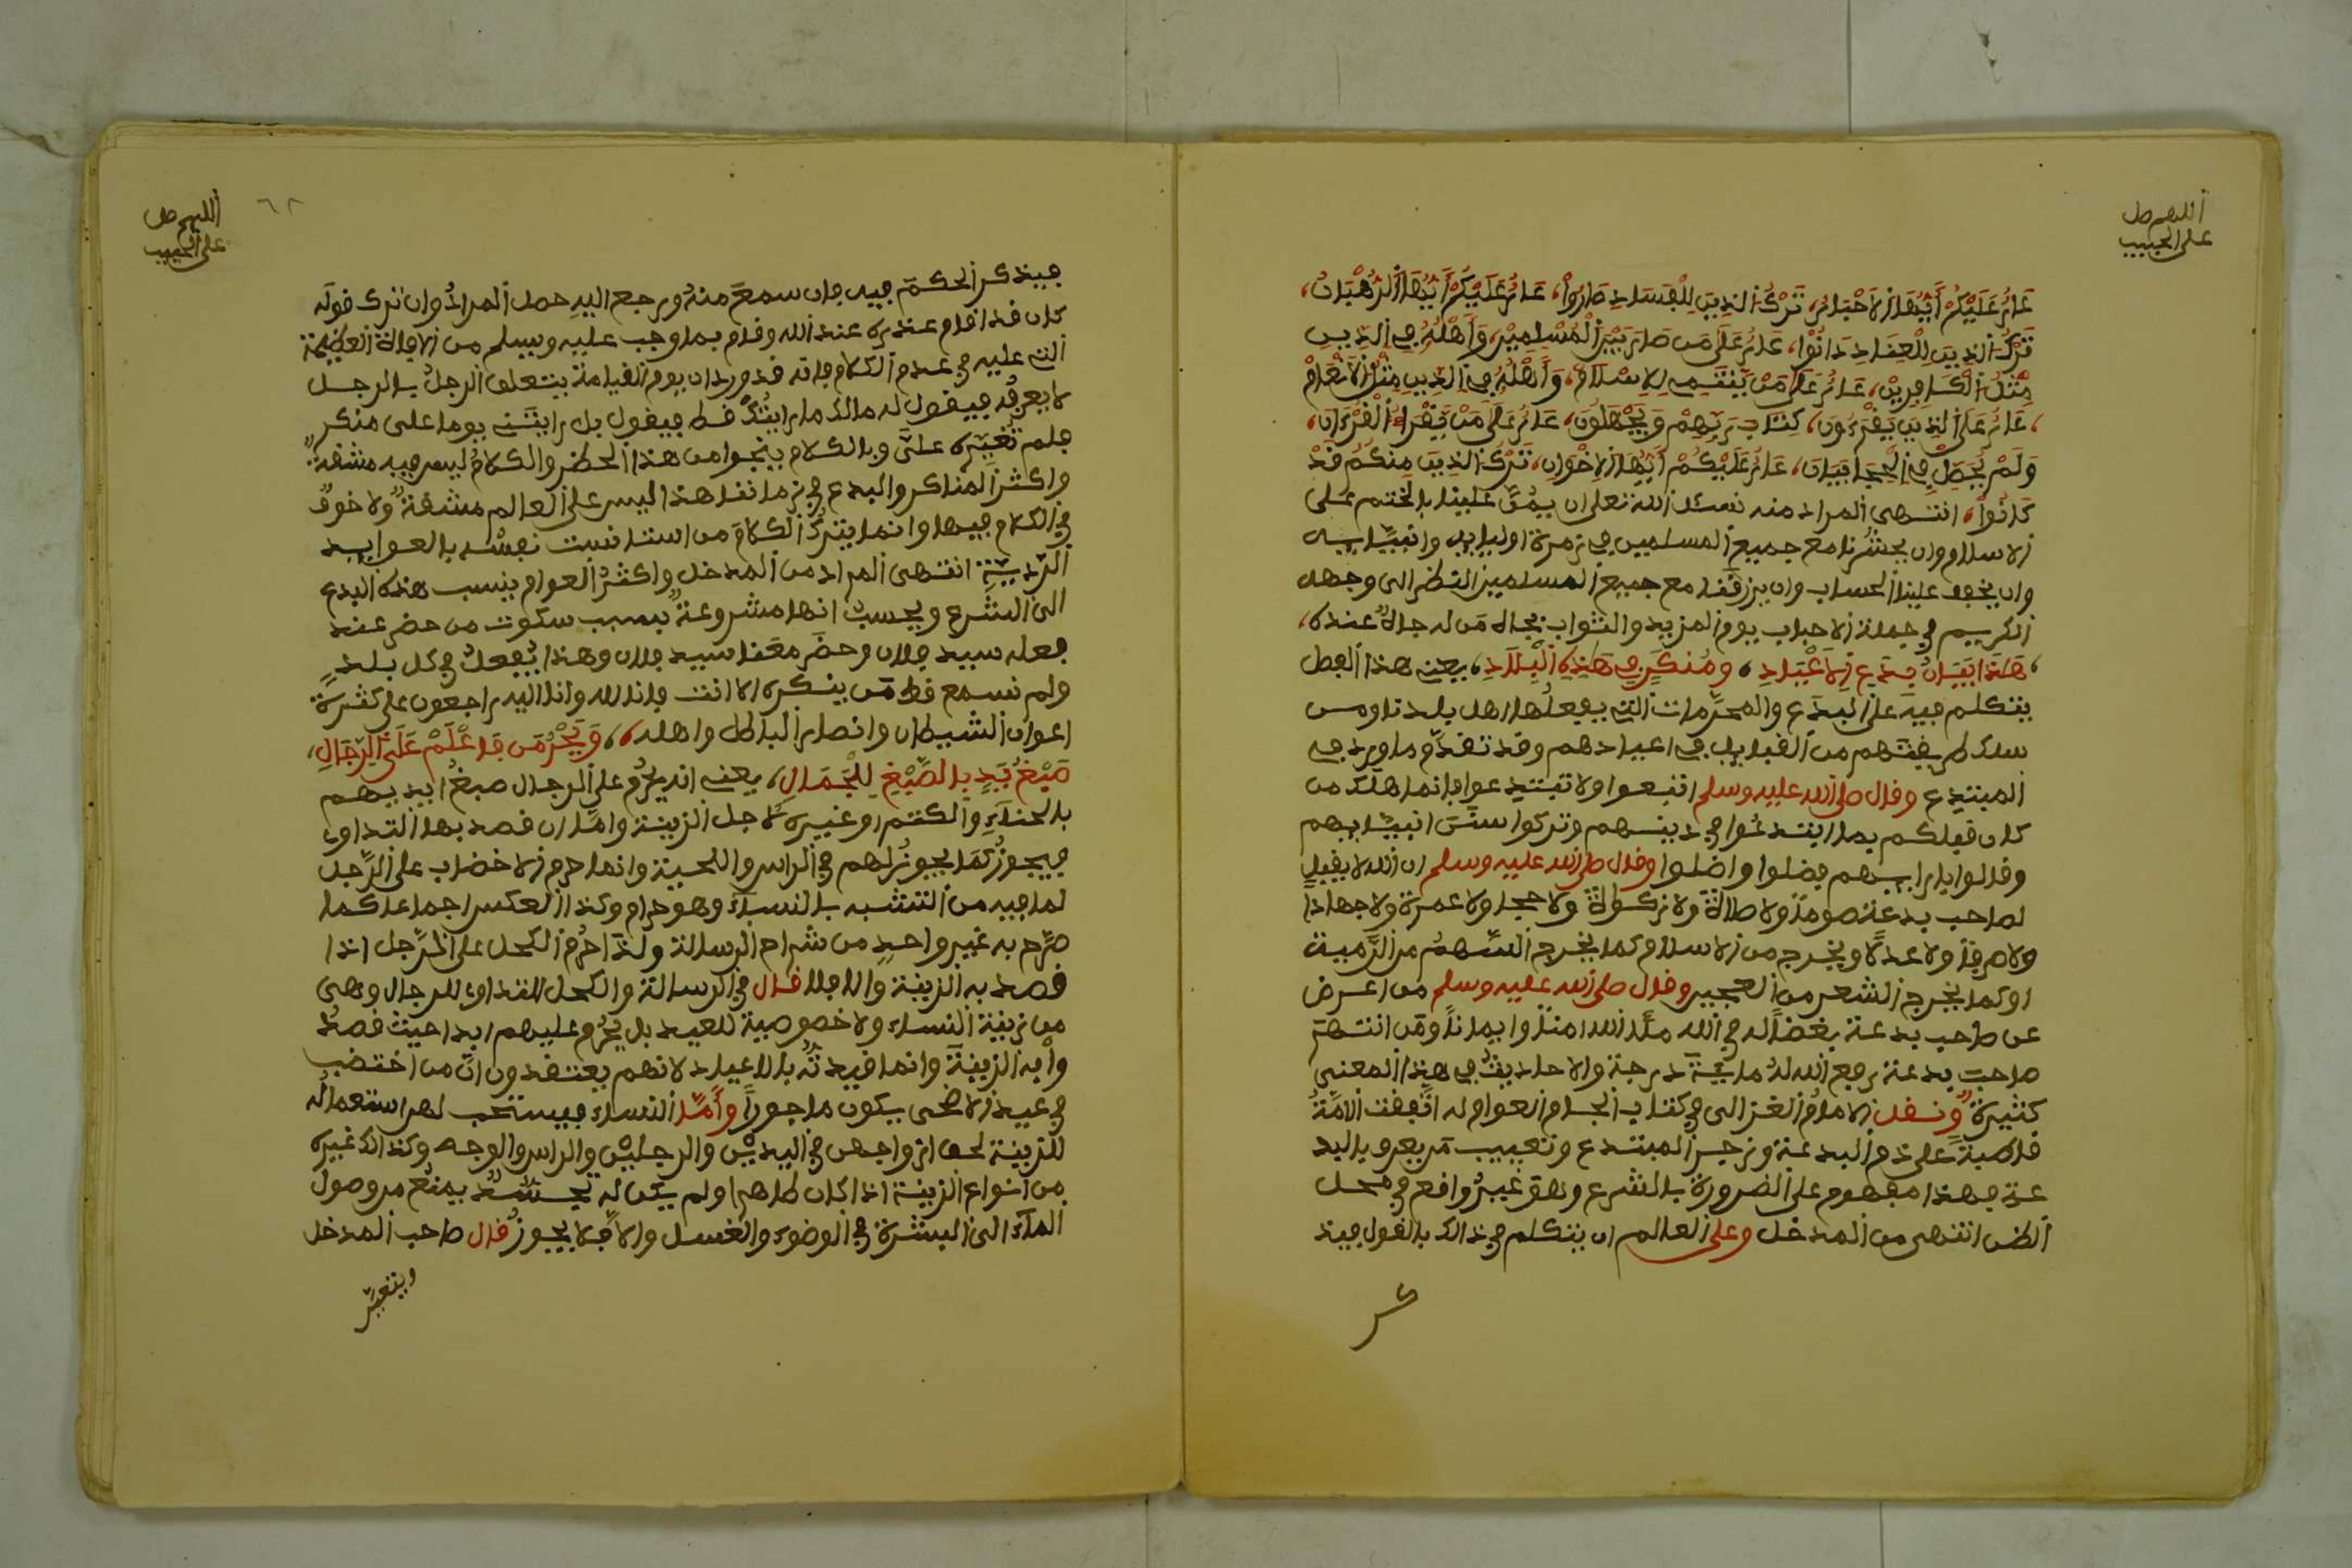 اللهم صل
على الحبيب
عَارٌ عَلَيْكُمْ أَيُّهَا الاَحْبَارُ، تَرْكُ الذِينَ لِلْفَسَادِ صَارُواْ، عَارٌ عَلَيْكُمْ أَيُّهَا الرُّهْبَانُ،
تَرْكُ الذِينَ لِلْعِنَادِ دَانُوْا، عَارٌ عَلَى مَن صَارَ بَيْنَ الْمُسْلِمِيْنَ، وَأَهْلُهُ فِي الدِّينِ
مِثْلُ الْكَافِرِيْنَ، عَارٌ عَلَى مَنْ يَنْتَمِي لِلاِسْلَامِ، وَأَهْلُهُ فِي الدِينِ مِثْلُ الاَنْعَامْ
، عَارٌ عَلَى الذِينَ يَقْرَءُونَ، كِتَابَ رَبِّهِمْ وَيَجْهَلُونَ، عَارٌ عَلَى مَنْ يَقْرَأُ الْقُرْءَانَ،
وَلَمْ يُحَصِّلْ فِي الْحَيَا بَيَانَ، عَارٌ عَلَيْكُمْ أَيُّهَا الاِخْوَانِ، تَرْكُ الذِينَ مِنكُمُ قَدْ
كَانُوْا، انتهى المراد منه نسئل الله تعلى ان يمُنَّ علينا بالختم على
الاسلام وان يحشُرنا مع جميع المسلمين في زمرة اوليايه وانبيّايه
وان يخفف علينا الحساب وان يرزقنا مع جميع المسلمين النظر الى وجهه
الكريم في جملة الاحباب يوم المزيد والثواب بجاه مَن له جاهٌ عنده،
، هَذَا بَيَانُ بِدَعِ الاَعْيَادِ، ومُنكَرٍ فِي هَذِهِ الْبِلَادِ، يعني هذا الفصل
يتكلم فيه على البدَع والمحرّمات التي يفعلُها اهل بلادنا ومن
سلك طريقتهم من القبايل في اعيادهم وقد تقدّم ما ورد في
المبتدِع وقال صلى الله عليه وسلم اتبعوا ولا تبتدِعوا فإنما هلَك من
كان قبلكم بما ابتدعُوا في دينهم وتركوا سننَ انبيّايهم
وقالوا بارايهم فضلوا واضلوا وقال صلى الله عليه وسلم ان الله لا يقبل
لصاحب بدعة صوماً ولا صلاة ولا زكواة ولا حجا ولا عمرة ولا جهادا
ولا صرفاً ولا عدلًا ويخرج من الاسلام كما يخرج السّهمُ من الرّمية
او كما يخرج الشعر من العجين وقال صلى الله عليه وسلم من اعرض
عن صاحب بدعة بغضاً له في الله ملَا الله امناً وايماناً ومن انتهر
صاحب بدعة رفع الله له مائيّة درجة والاحاديث في هذا المعنى
كثيرة ونقل الامام الغزالى في كتاب الجام العوام له اتّفقت الامّةُ
قاطبة على ذم البدعة وزجر المبتدع وتعييب من يعرف بالبد
عة فهذا مفهوم على الضرورة بالشرع وهو غيرُ واقع في محل
الظن انتهى من المدخل وعلى العالم ان يتكلم في ذالك بالقول فيذ
كر
اللهم صل
على الحبيب
٦٢
فيذكر الحكمَ فيه فان سمعَ منهُ ورجع اليهِ حصل المرادُ وان ترك قوله
كان قد اقام عذره عند الله وقام بما وجب عليه ويسلم من الافة العظيمة
التي عليه في عدم الكلام فانه قد ورد ان يوم القيامة يتعلق الرجلُ بالرجل
لا يعرفُه فيقول له مالك ما رايتُكَ قط فيقول بل رايتَني يوما على منكر
فلم تُغَيّره علىّ وبالكلام ينجوا من هذا الخطر والكلامُ ليس فيه مشقةٌ
واكثر المناكر والبدع في زماننا هذا ليس على العالم مشقةٌ ولا خوفٌ
في الكلام فيها وانما يترُك الكلامَ من استانست نفسُه بالعوايد
الرّديّة انتهى المراد من المدخل واكثرُ العوام ينسب هذه البدع
الى الشرع ويحسبُ انها مشروعةٌ بسبب سكوت من حضر عند
فعله سيد فلان وحضَر معنا سيد فلان وهذا يُفعلُ في كل بلدٍ
ولم نسمع قط مَن ينكره الا انت فإنا لله وانا اليه راجعون على كثرة
اعوان الشيطان وانصار الباطل واهله، وَيَحْرُمَن فَاعْلَمْ عَلَى الرِّجَالِ،
صَبْغُ يَدٍ بالصِّبْغِ لِلْجَمَالِ، يعني انه يحرُم على الرجال صبغُ ايديهم
بالحناءِ والكتم او غيره لاجل الزينة وامّا ان قصد بها التداوى
فيجوزُ كمَا يجوزُ لهم في الراس واللحية وانما حرم الاخضاب على الرّجل
لما فيه من التشبه بالنساءَ وهو حرام وكذا العكس اجماعا كما
صرّح به غير واحدٍ من شراح الرسالة ولذا حرُم الكحل على الرّجل اذا
قصد به الزينة والا فلا قال في الرسالة والكحل للتداوى للرجال وهى
من زينة النساء ولا خصوصية للعيد بل يحرُم عليهم ابدا حيث قصدُ
وا به الزينةَ وانما قيدتُّه بالاعياد لانهم يعتقدون انّ من اختضب
في عيد الاضحى يكون ماجوراً وأمّا النساء فيستحب لهن استعمالُه
للزينة لحق ازواجهن في اليديْن والرجليْن والراس والوجه وكذالك غيره
من انواع الزينة اذا كان طاهرا ولم يكن له تجسُّدٌ يمنعُ من وصول
الماءَ الى البشرة في الوضوء والغسل والاّ فلا يجوزُ قال صاحب المدخل
ويتعيّن